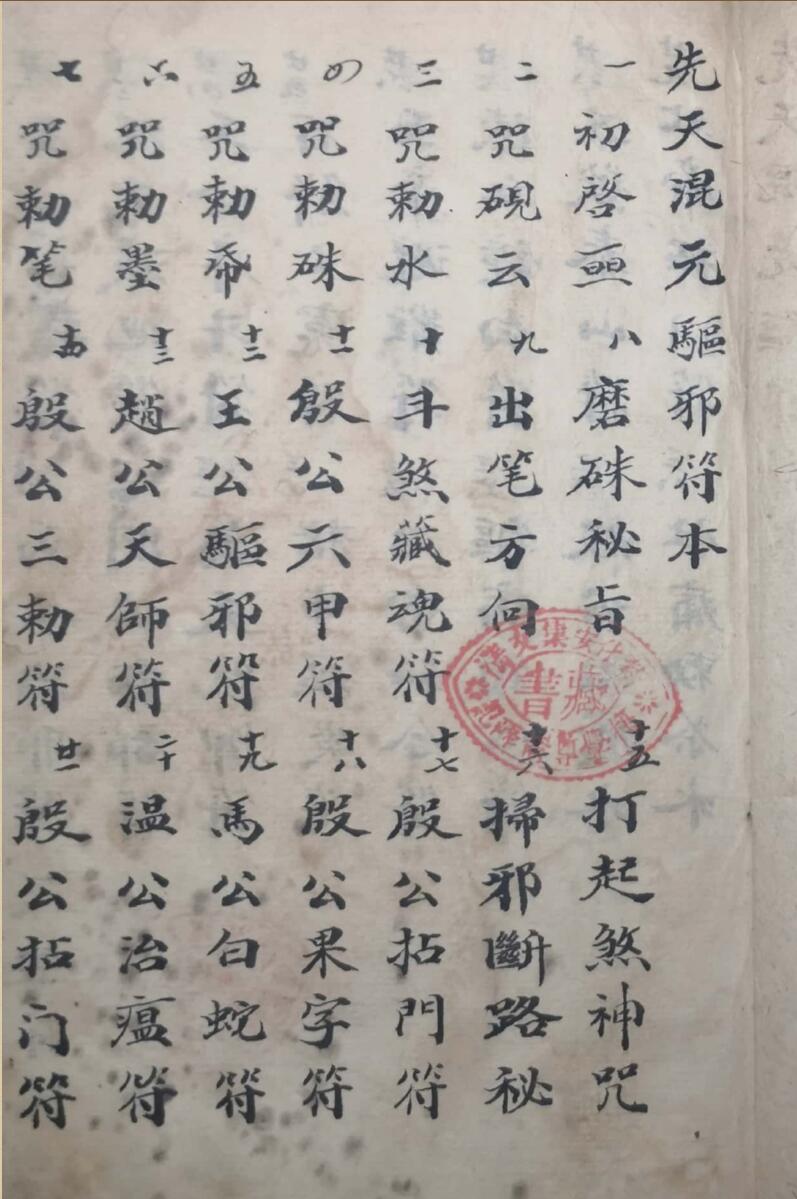 先天混元驅邪符本
一 初啓 八 磨硃秘旨 十五 打起煞神咒
二 咒硯云 九 出笔方向 十六 掃邪斷路秘
三 咒勅水 十 斗煞藏魂符 十七 殷公拈門符
四 咒勅硃 十一 殷公六甲符 十八 殷公果字符
五 咒勅帋 十二 王公驅邪符 十九 馬公白蛇符
六 咒勅墨 十三 趙公天師符 二十 温公治瘟符
七 咒勅笔 十四 殷公三勅符 廿一 殷公拈门符
藏書